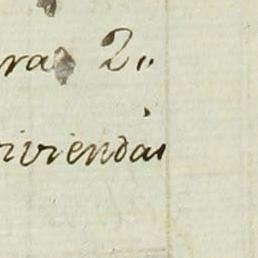 ra 2.
viviendas